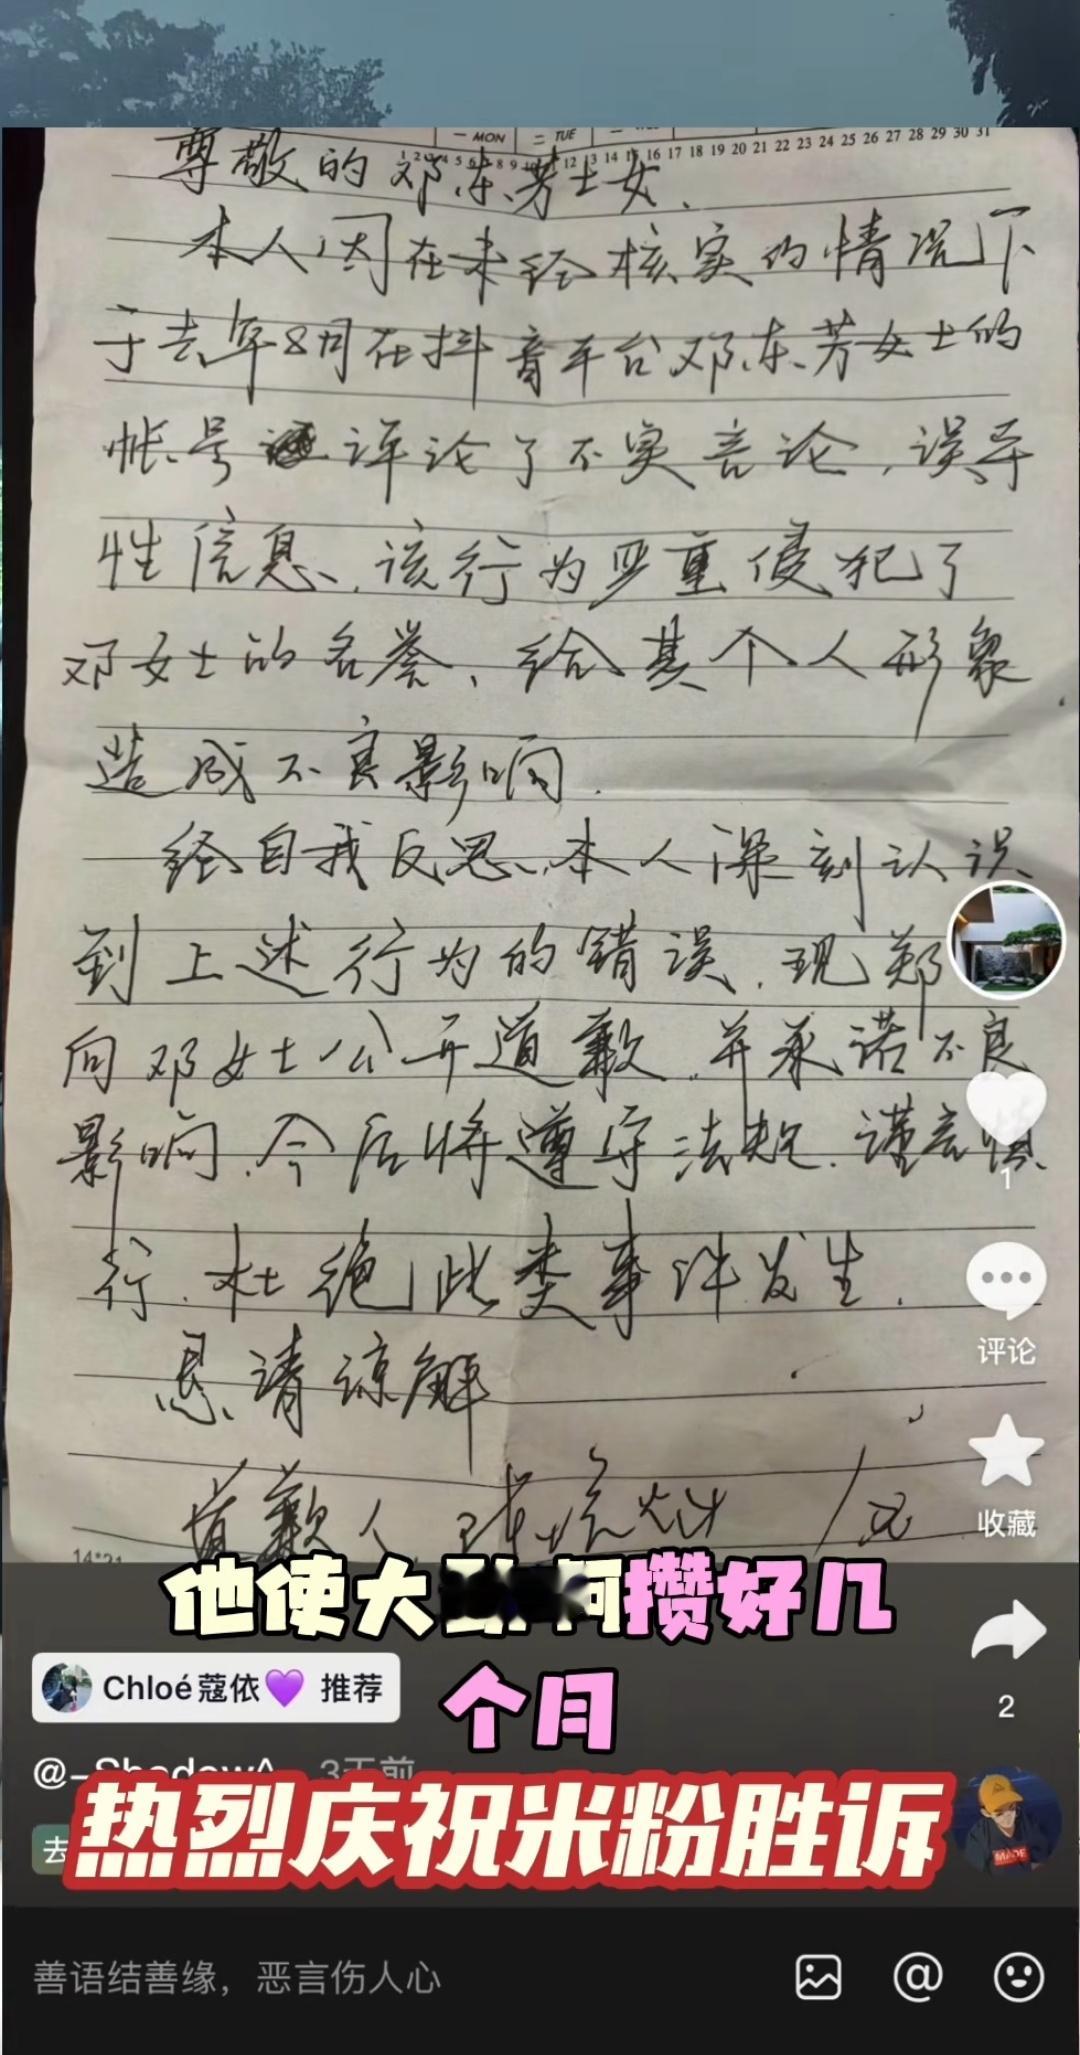 一 MON 二 TUE
1 2 3 4 5 6 7 8 9 10 11 12 13 14 15 16 17 18 19 20 21 22 23 24 25 26 27 28 29 30 31
尊敬的邓东芳士女、
本人因在未经核实的情况下
于去年8月在抖音平台邓东芳女士的
帐号评论了不实言论，误导
性信息，该行为严重侵犯了
邓女士的名誉、给其个人形象
造成不良影响.
经自我反思，本人深刻认识
到上述行为的错误，现郑
向邓女士公开道歉，并承诺不良
影响，今后将遵守法规，谨言慎
行，杜绝此类事件发生.
恳请谅解
道歉人
14*21
1
评论
收藏
2
他使大 阿攒好几
个月
Chloé蔻依💜 推荐
@-ShadowA 3天前
去
热烈庆祝米粉胜诉
MADE
善语结善缘，恶言伤人心